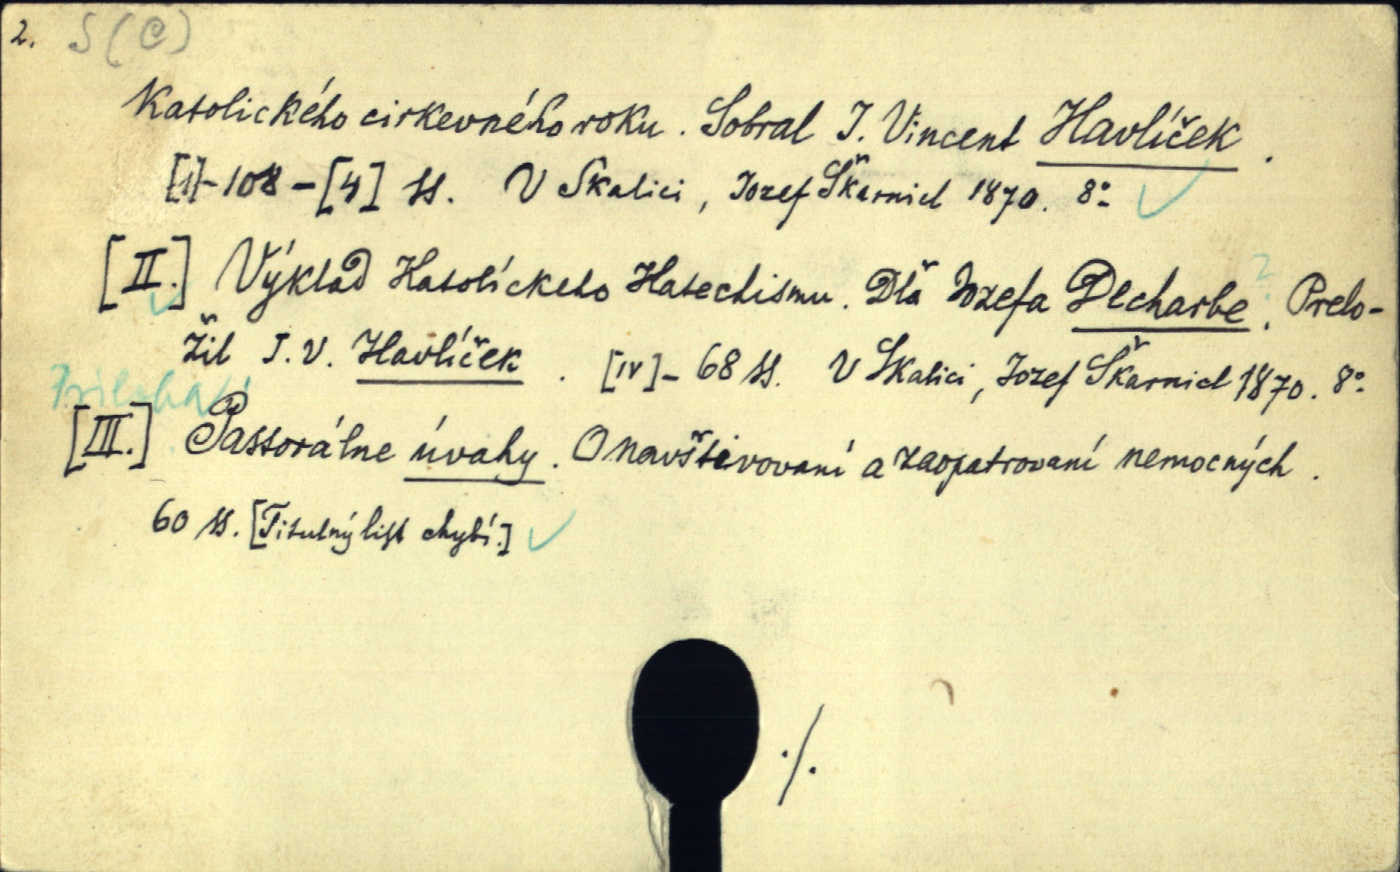 2. S (C)
Katolického cirkevného roku. Sobral I. Vincent Havlíček.
[1]-108-[4] ss. V Skalici, Jozef Škarnicl 1870. 8°
[II.] Výklad Katolíckeho Katechismu. Dľa Jozefa Decharbe. ? Prelo-
žil I. V. Havlíček. [IV]-68 ss. V Skalici, Jozef Škarnicl 1870. 8°
[III.] Pastorálne úvahy. O navštivovaní a zaopatrovaní nemocných.
60 ss. [Titulný list chybí.]
./.